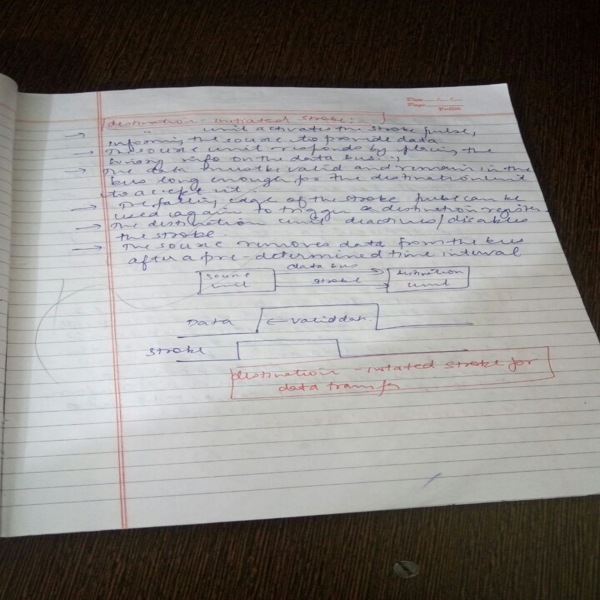 destination - initiated stroke :-
→ " unit activates the stroke pulse,
informing the source to provide data
→ The source unit responds by placing the
binary info on the data bus.
→ The data must be valid and remain in the
bus long enough for the destination unit
to accept it.
→ The falling edge of the stroke pulse can be
used again to trigger a destination register
→ The destination unit deactives/disables
the stroke
→ The source removes data from the bus
after a pre-determined time interval
data bus
source
unit
stroke
destination
unit
Data
← valid data
stroke
destination - initated stroke for
data transfer